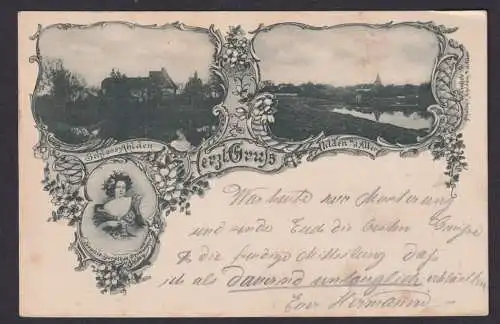 Schloss Ahlden
Herzl. Gruß
Ahlden a/d Aller
War heute zur Musterung
und sende Euch die besten Grüße
& die freudige Mitteilung daß
ich als dauernd untauglich erklärt bin
Euer Hermann